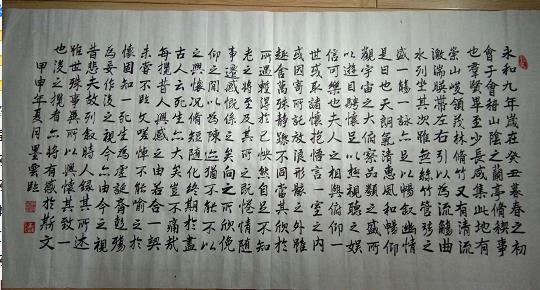 永和九年歲在癸丑暮春之初
會于會稽山陰之蘭亭脩禊事
也羣賢畢至少長咸集此地有
崇山峻領茂林脩竹又有清流
激湍暎帶左右引以為流觴曲
水列坐其次雖無絲竹管弦之
盛一觴一詠亦足以暢叙幽情
是日也天朗氣清惠風和暢仰
觀宇宙之大俯察品類之盛所
以遊目騁懷足以極視聽之娛
信可樂也夫人之相與俯仰一
世或取諸懷抱悟言一室之內
或因寄所託放浪形骸之外雖
趣舍萬殊靜躁不同當其欣於
所遇暫得於己怏然自足不知
老之將至及其所之既惓情隨
事遷感慨係之矣向之所欣俛
仰之間以為陳迹猶不能不以
之興懷況脩短隨化終期於盡
古人云死生亦大矣豈不痛哉
每攬昔人興感之由若合一契
未嘗不臨文嗟悼不能喻之於
懷固知一死生為虛誕齊彭殤
為妄作後之視今亦由今之視
昔悲夫故列叙時人錄其所述
雖世殊事異所以興懷其致一
也後之攬者亦將有感於斯文
甲申年夏月墨雲臨